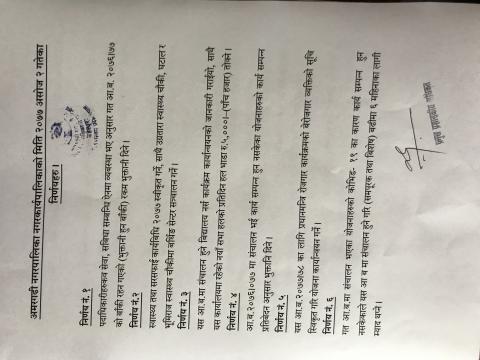 अमरगढी नगरपालिका नगरकार्यपालिकाको मिति २०७७ असोज २ गतेका
निर्णयहरु ।
निर्णय नं. १
पदाधिकारीहरुका सेवा, सुविधा सम्बन्धि ऐनमा व्यवस्था भए अनुसार गत आ.ब. २०७६।७७
को बाँकी रहन गएको (भुक्तानी हुन बाँकी) रकम भुक्तानी दिने ।
निर्णय नं.२
स्वास्थ्य तथा सरसफाई कार्यबिधि २०७७ स्वीकृत गर्ने, साथै उग्रतारा स्वास्थ्य चौकी, घटाल र
भूमिराज स्वास्थ्य चौकीमा बर्थिङ सेन्टर सञ्चालन गर्ने ।
निर्णय नं. ३
यस आ.ब.मा संचालन हुने बिद्यालय नर्स कार्यक्रम कार्यान्वयनको जानकारी गराईयो, साथै
यस कार्यालयमा रहेको नयाँ सभा हलको प्रतिदिन हल भाडा रु.५,०००।–(पाँच हजार) तोक्ने ।
निर्णय नं. ४
आ.ब.२०७६।०७७ मा संचालन भई कार्य सम्पन्न हुन नसकेका योजनाहरुको कार्य सम्पन्न
प्रतिबेदन अनुसार भुक्तानि दिने ।
निर्णय नं. ५
यस आ.ब.२०७७।७८ का लागि प्रधानमन्त्रि रोजगार कार्यक्रमको बेरोजगार व्यक्तिको सूचि
स्विकृत गरि योजना कार्यान्वयन गर्ने ।
निर्णय नं. ६
गत आ.ब.मा संचालन भएका योजनाहरुको कोभिड- १९ का कारण कार्य सम्पन्न हुन
नसकेकाले यस आ ब मा संचालन हुने गरि (समपूरक तथा बिशेष) बढीमा ६ महिनाका लागी
म्याद थप्ने ।